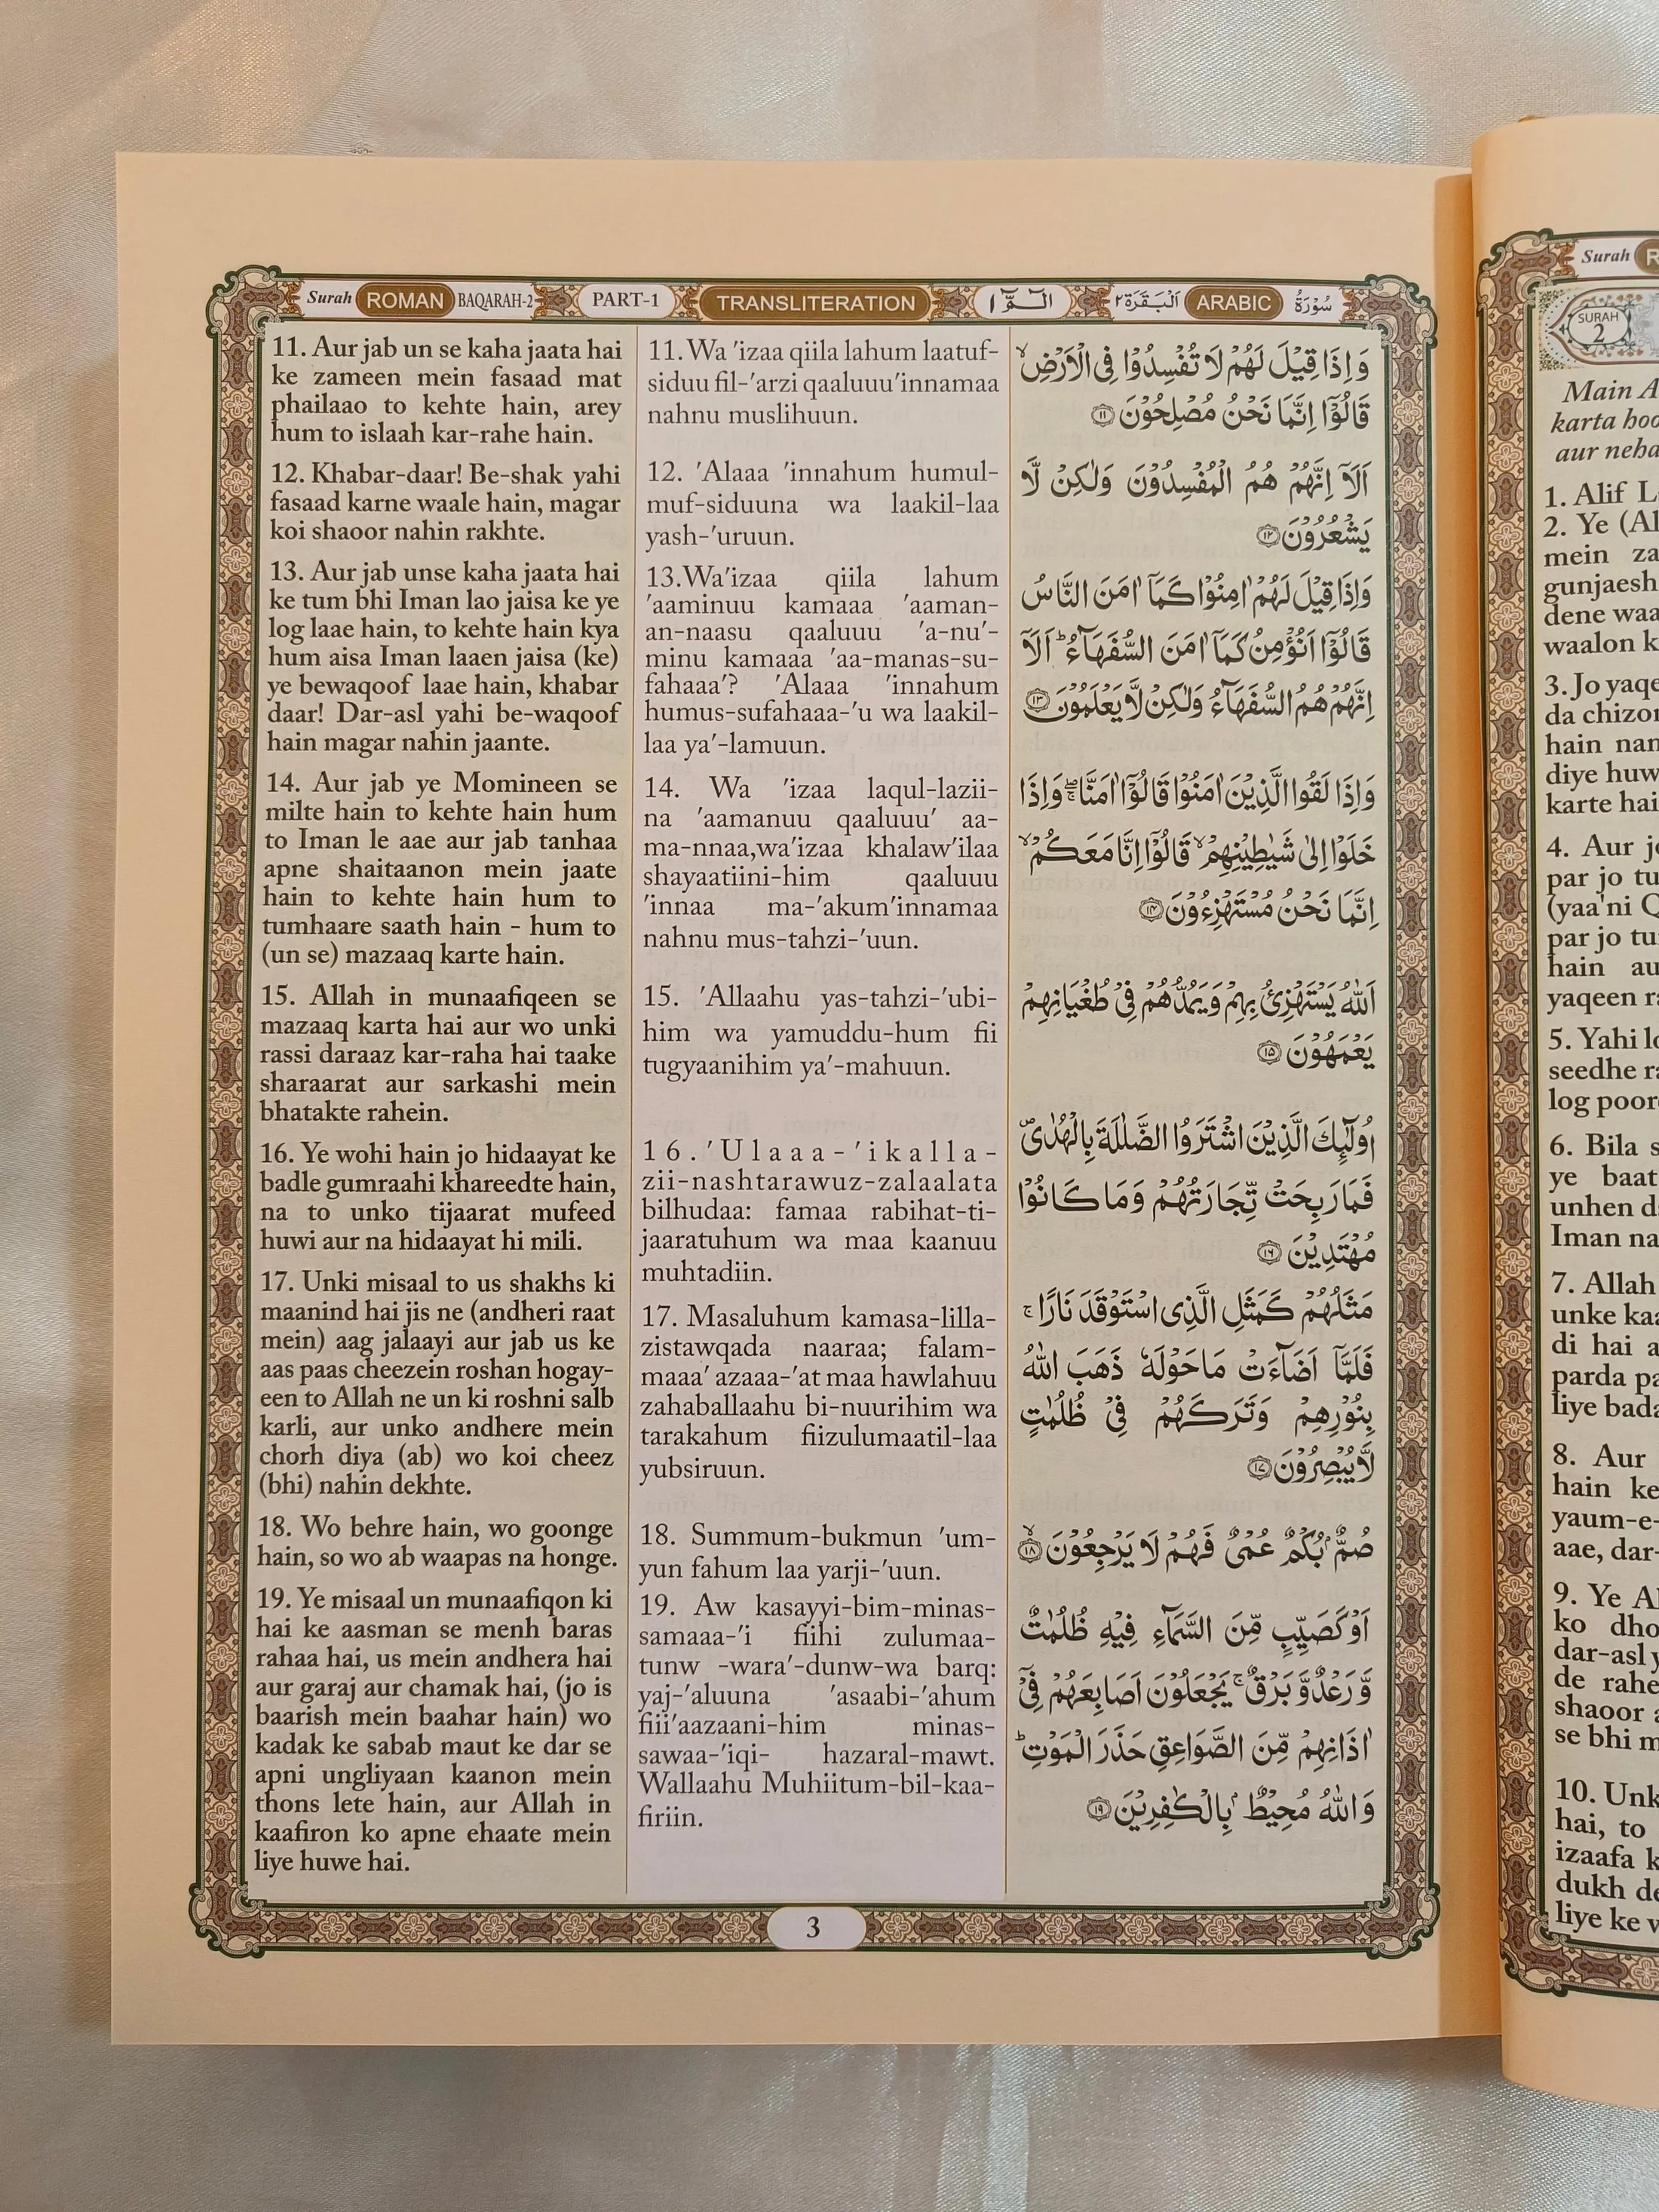 Surah ROMAN BAQARAH-2 PART-1 TRANSLITERATION الٓمّٓ ۱ اَلْبَقَرَة ٢ ARABIC سُوْرَةُ
11. Aur jab un se kaha jaata hai
ke zameen mein fasaad mat
phailaao to kehte hain, arey
hum to islaah kar-rahe hain.
12. Khabar-daar! Be-shak yahi
fasaad karne waale hain, magar
koi shaoor nahin rakhte.
13. Aur jab unse kaha jaata hai
ke tum bhi Iman lao jaisa ke ye
log laae hain, to kehte hain kya
hum aisa Iman laaen jaisa (ke)
ye bewaqoof laae hain, khabar
daar! Dar-asl yahi be-waqoof
hain magar nahin jaante.
14. Aur jab ye Momineen se
milte hain to kehte hain hum
to Iman le aae aur jab tanhaa
apne shaitaanon mein jaate
hain to kehte hain hum to
tumhaare saath hain - hum to
(un se) mazaaq karte hain.
15. Allah in munaafiqeen se
mazaaq karta hai aur wo unki
rassi daraaz kar-raha hai taake
sharaarat aur sarkashi mein
bhatakte rahein.
16. Ye wohi hain jo hidaayat ke
badle gumraahi khareedte hain,
na to unko tijaarat mufeed
huwi aur na hidaayat hi mili.
17. Unki misaal to us shakhs ki
maanind hai jis ne (andheri raat
mein) aag jalaayi aur jab us ke
aas paas cheezein roshan hogay-
een to Allah ne un ki roshni salb
karli, aur unko andhere mein
chorh diya (ab) wo koi cheez
(bhi) nahin dekhte.
18. Wo behre hain, wo goonge
hain, so wo ab waapas na honge.
19. Ye misaal un munaafiqon ki
hai ke aasman se menh baras
rahaa hai, us mein andhera hai
aur garaj aur chamak hai, (jo is
baarish mein baahar hain) wo
kadak ke sabab maut ke dar se
apni ungliyaan kaanon mein
thons lete hain, aur Allah in
kaafiron ko apne ehaate mein
liye huwe hai.
11.Wa 'izaa qiila lahum laatuf-
siduu fil-'arzi qaaluuu'innamaa
nahnu muslihuun.
12. 'Alaaa 'innahum humul-
muf-siduuna wa laakil-laa
yash-'uruun.
13.Wa'izaa qiila lahum
'aaminuu kamaaa 'aaman-
an-naasu qaaluuu 'a-nu'-
minu kamaaa 'aa-manas-su-
fahaaa'? 'Alaaa 'innahum
humus-sufahaaa-'u wa laakil-
laa ya'-lamuun.
14. Wa 'izaa laqul-lazii-
na 'aamanuu qaaluuu' aa-
ma-nnaa,wa'izaa khalaw'ilaa
shayaatiini-him qaaluuu
'innaa ma-'akum'innamaa
nahnu mus-tahzi-'uun.
15. 'Allaahu yas-tahzi-'ubi-
him wa yamuddu-hum fii
tugyaanihim ya'-mahuun.
16.'Ulaaa-'ikalla-
zii-nashtarawuz-zalaalata
bilhudaa: famaa rabihat-ti-
jaaratuhum wa maa kaanuu
muhtadiin.
17. Masaluhum kamasa-lilla-
zistawqada naaraa; falam-
maaa' azaaa-'at maa hawlahuu
zahaballaahu bi-nuurihim wa
tarakahum fiizulumaatil-laa
yubsiruun.
18. Summum-bukmun 'um-
yun fahum laa yarji-'uun.
19. Aw kasayyi-bim-minas-
samaaa-'i fiihi zulumaa-
tunw -wara'-dunw-wa barq:
yaj-'aluuna 'asaabi-'ahum
fiii'aazaani-him minas-
sawaa-'iqi- hazaral-mawt.
Wallaahu Muhiitum-bil-kaa-
firiin.
وَ اِذَا قِيْلَ لَهُمْ لَا تُفْسِدُوْا فِى الْاَرْضِۙ
قَالُوْٓا اِنَّمَا نَحْنُ مُصْلِحُوْنَ ۝۱۱
اَلَآ اِنَّهُمْ هُمُ الْمُفْسِدُوْنَ وَلٰكِنْ لَّا
يَشْعُرُوْنَ ۝۱۲
وَاِذَا قِيْلَ لَهُمْ اٰمِنُوْا كَمَآ اٰمَنَ النَّاسُ
قَالُوْٓا اَنُؤْمِنُ كَمَآ اٰمَنَ السُّفَهَآءُ ؕ اَلَآ
اِنَّهُمْ هُمُ السُّفَهَآءُ وَلٰكِنْ لَّا يَعْلَمُوْنَ ۝۱۳
وَاِذَا لَقُوا الَّذِيْنَ اٰمَنُوْا قَالُوْٓا اٰمَنَّا ۖۚ وَاِذَا
خَلَوْا اِلٰى شَيٰطِيْنِهِمْ ۙ قَالُوْٓا اِنَّا مَعَكُمْ ۙ
اِنَّمَا نَحْنُ مُسْتَهْزِءُوْنَ ۝۱۴
اَللّٰهُ يَسْتَهْزِئُ بِهِمْ وَيَمُدُّهُمْ فِيْ طُغْيَانِهِمْ
يَعْمَهُوْنَ ۝۱۵
اُولٰٓئِكَ الَّذِيْنَ اشْتَرَوُا الضَّلٰلَةَ بِالْهُدٰى ۪
فَمَا رَبِحَتْ تِّجَارَتُهُمْ وَمَا كَانُوْا
مُهْتَدِيْنَ ۝۱۶
مَثَلُهُمْ كَمَثَلِ الَّذِى اسْتَوْقَدَ نَارًا ۚ
فَلَمَّآ اَضَآءَتْ مَا حَوْلَهٗ ذَهَبَ اللّٰهُ
بِنُوْرِهِمْ وَتَرَكَهُمْ فِيْ ظُلُمٰتٍ
لَّا يُبْصِرُوْنَ ۝۱۷
صُمٌّۢ بُكْمٌ عُمْىٌ فَهُمْ لَا يَرْجِعُوْنَ ۝۱۸ۙ
اَوْ كَصَيِّبٍ مِّنَ السَّمَآءِ فِيْهِ ظُلُمٰتٌ
وَّرَعْدٌ وَّبَرْقٌ ۚ يَجْعَلُوْنَ اَصَابِعَهُمْ فِيْٓ
اٰذَانِهِمْ مِّنَ الصَّوَاعِقِ حَذَرَ الْمَوْتِ ؕ
وَاللّٰهُ مُحِيْطٌۢ بِالْكٰفِرِيْنَ ۝۱۹
3
Surah
SURAH
2
Main
karta
aur
1. Alif
2. Ye
mein
dene
3. Jo
da
hain
diye
karte
4. Aur
par jo
(yaa'ni
par jo
hain
yaqeen
5. Yahi
seedhe
log
6. Bila
ye
unhen
Iman
7. Allah
unke
di hai
parda
liye
8. Aur
hain
aae,
9. Ye
ko
de
shaoor
se bhi
10.
hai, to
izaafa
dukh
liye ke